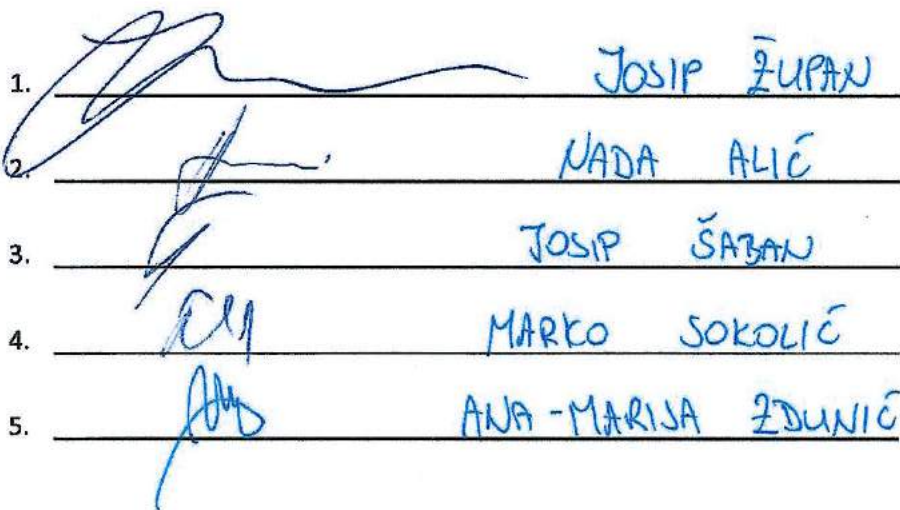 1. JOSIP ŽUPAN
2. NADA ALIĆ
3. JOSIP ŠABAN
4. MARKO SOKOLIĆ
5. ANA-MARIJA ZDUNIĆ